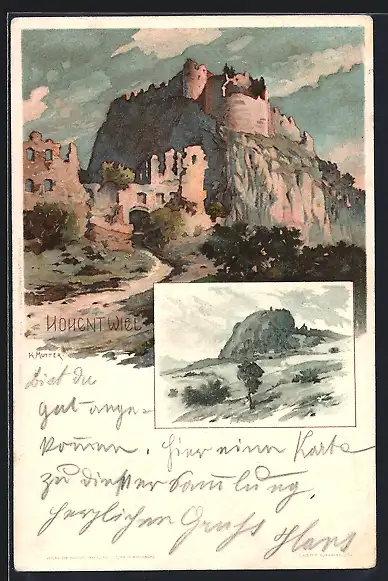 HOHENTWIEL
K. MUTTER
Bist du
gut ange-
kommen. Hier eine Karte
zu dießer Samlung,
herzlichen Gruß Hans